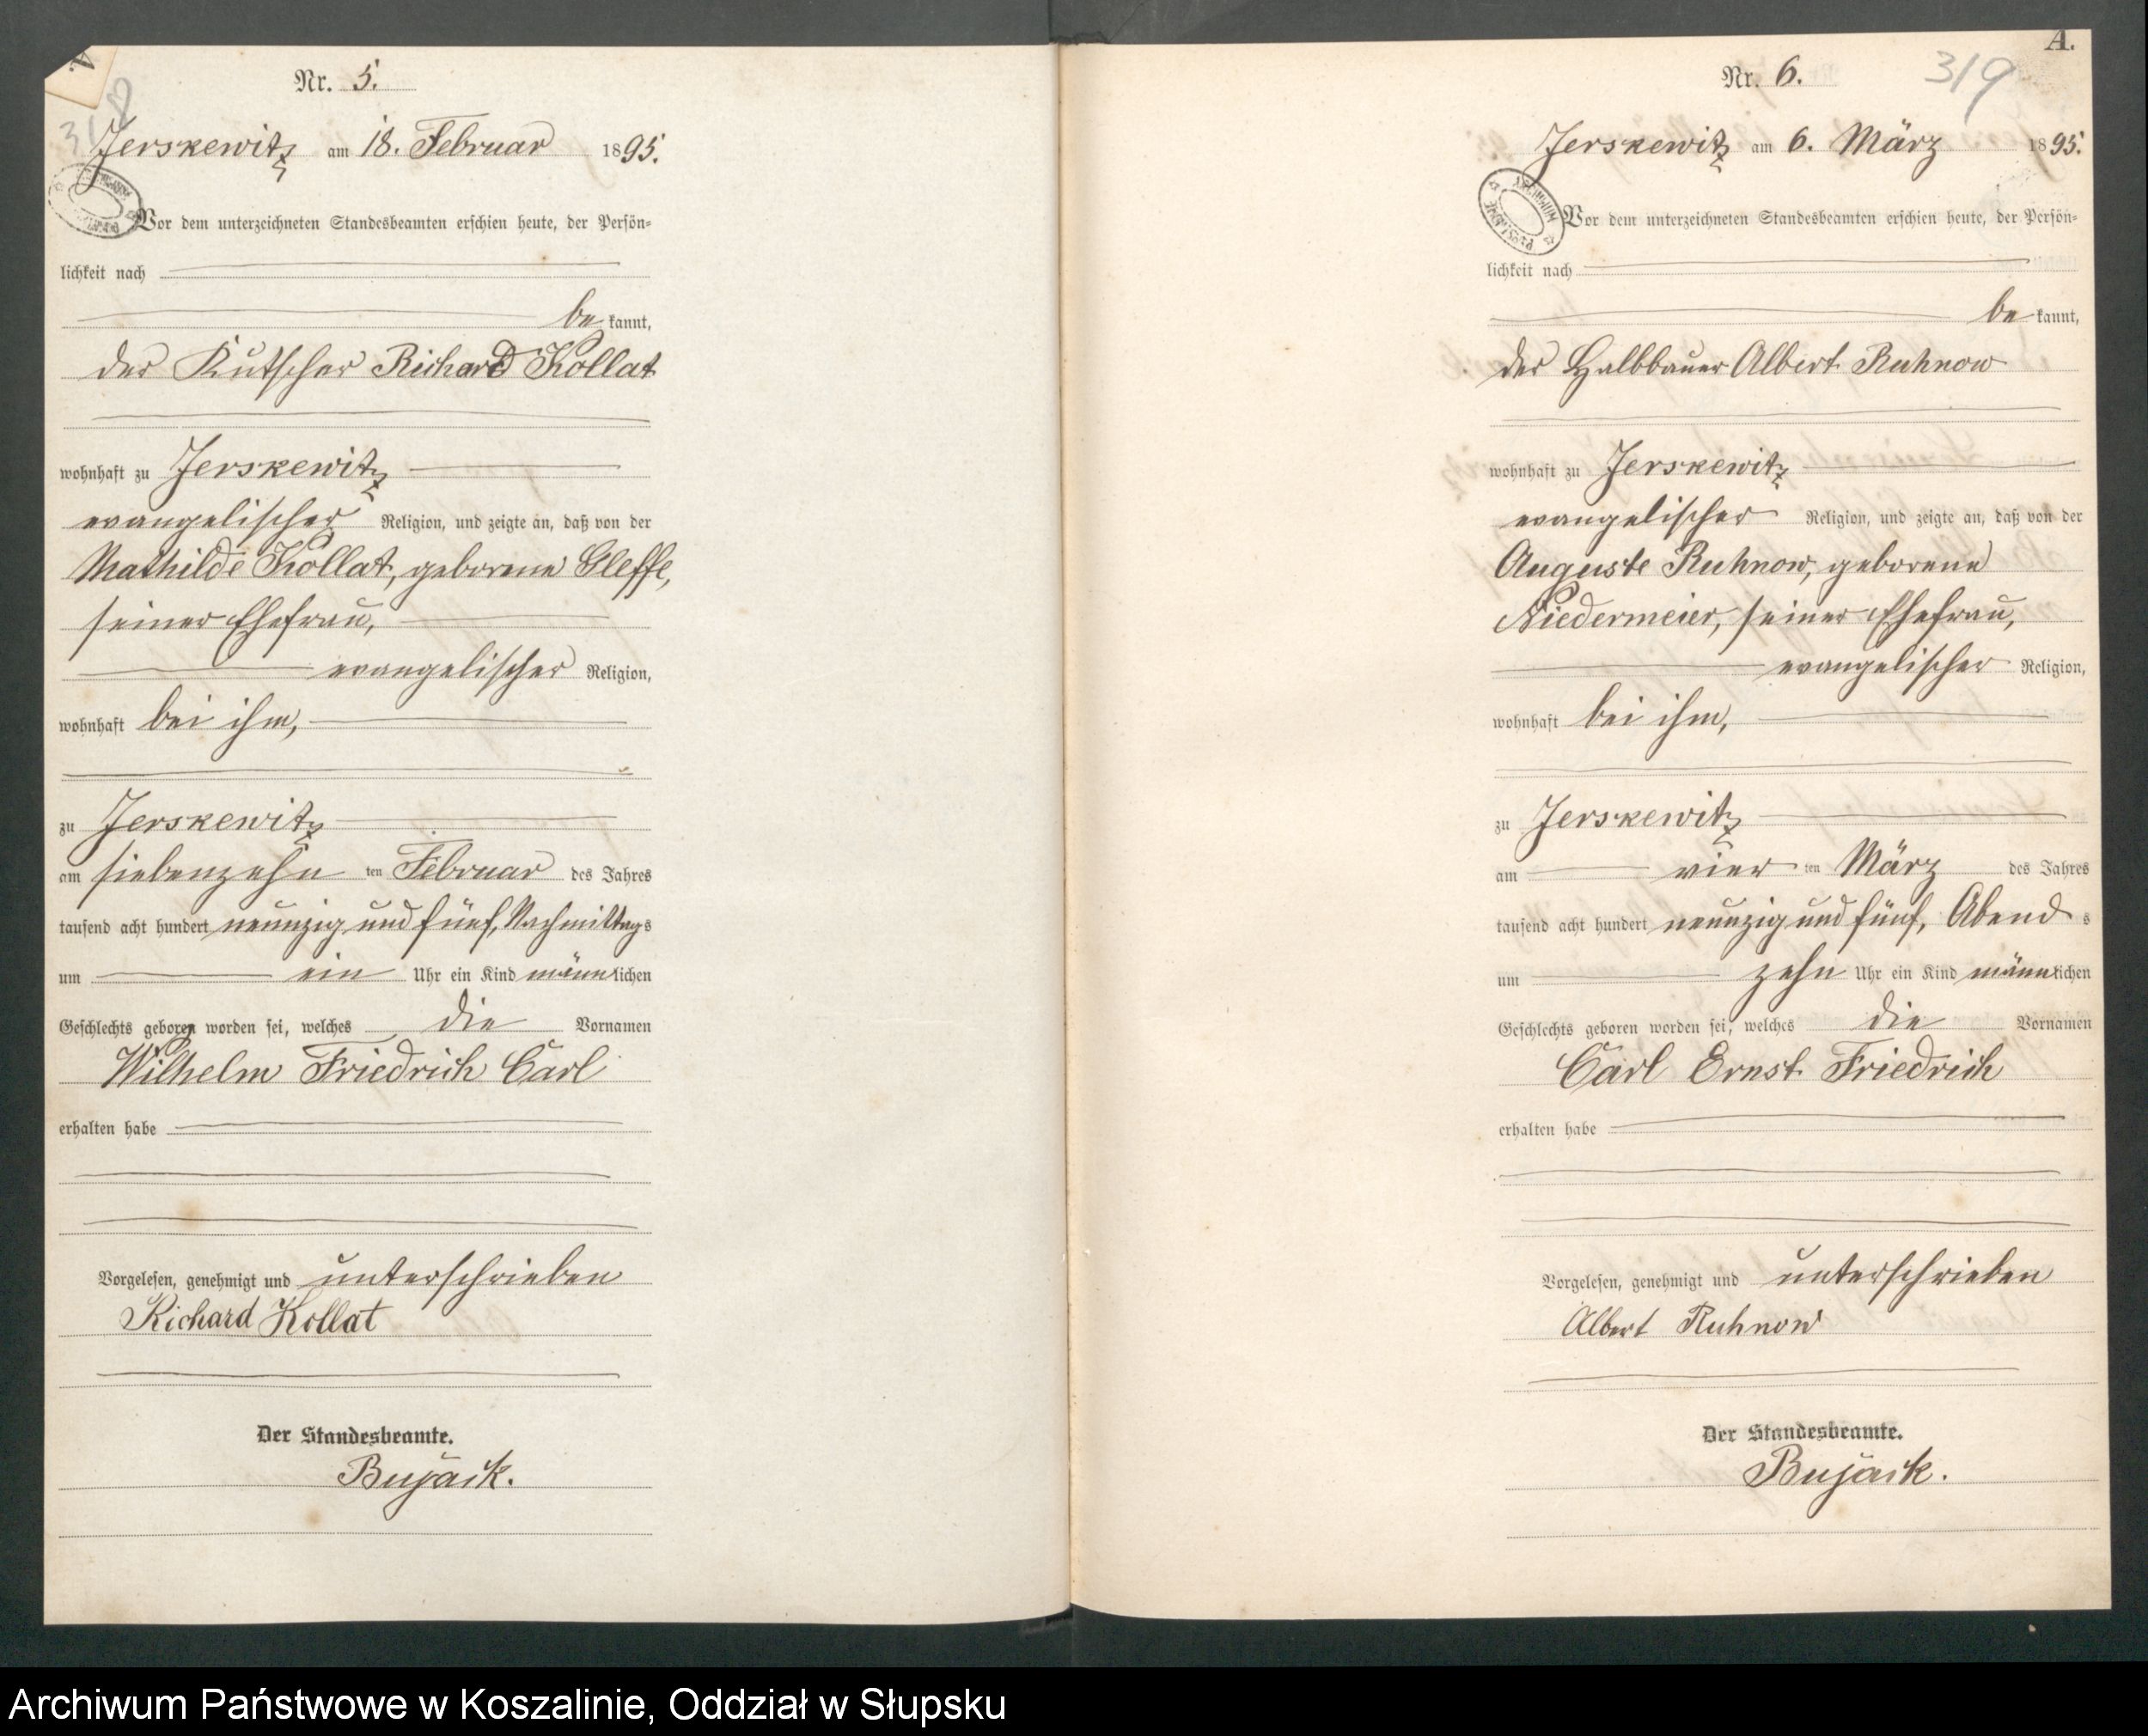 Nr. 5.
318
Jerskewitz am 18. Februar 1895.
Vor dem unterzeichneten Standesbeamten erschien heute, der Persön-
lichkeit nach
be kannt,
der Kutscher Richard Kollat
wohnhaft zu Jerskewitz
evangelischer Religion, und zeigte an, daß von der
Mathilde Kollat, geborene Gleffe,
seiner Ehefrau,
evangelischer Religion,
wohnhaft bei ihm,
zu Jerskewitz
am siebenzehn ten Februar des Jahres
tausend acht hundert neunzig und fünf, Nachmittags
um ein Uhr ein Kind männlichen
Geschlechts geboren worden sei, welches die Vornamen
Wilhelm Friedrich Carl
erhalten habe
Vorgelesen, genehmigt und unterschrieben
Richard Kollat
Der Standesbeamte.
Bujack.
A.
Nr. 6.
319
Jerskewitz am 6. März 1895.
ARCHIWUM
Vor dem unterzeichneten Standesbeamten erschien heute, der Persön-
lichkeit nach
be kannt,
der Halbbauer Albert Ruhnow
wohnhaft zu Jerskewitz
evangelischer Religion, und zeigte an, daß von der
Auguste Ruhnow, geborene
Niedermeier, seiner Ehefrau,
evangelischer Religion,
wohnhaft bei ihm,
zu Jerskewitz
am vier ten März des Jahres
tausend acht hundert neunzig und fünf, Abend s
um zehn Uhr ein Kind männlichen
Geschlechts geboren worden sei, welches die Vornamen
Carl Ernst Friedrich
erhalten habe
Vorgelesen, genehmigt und unterschrieben
Albert Ruhnow
Der Standesbeamte.
Bujack.
Archiwum Państwowe w Koszalinie, Oddział w Słupsku